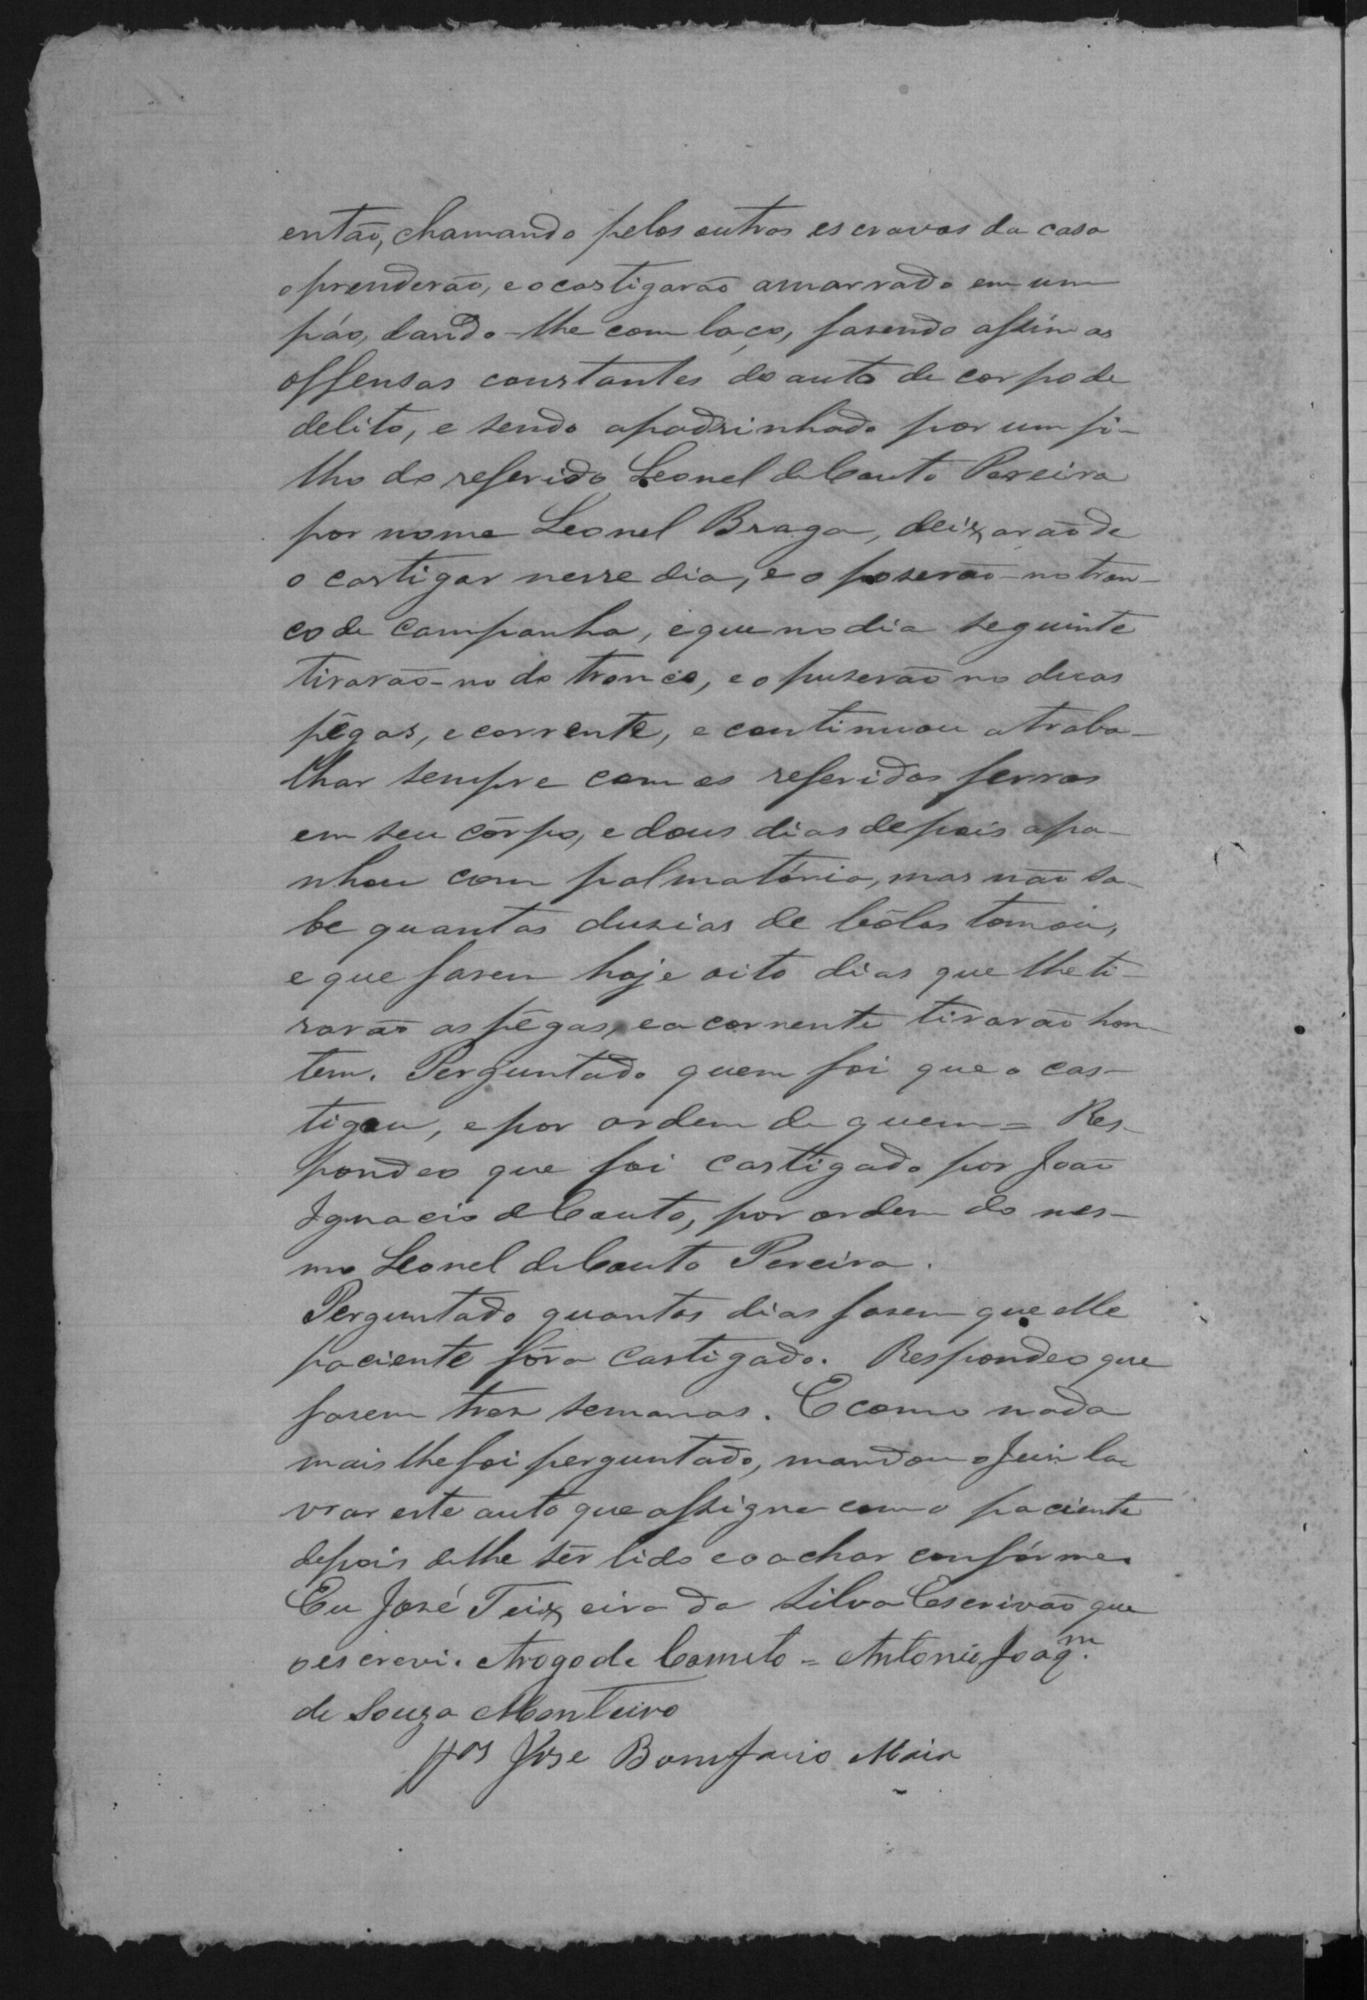 então, chamando pelos outros escravos da casa
o prenderão, e o castigarão amarrado em um
páo, dando-lhe com laço, fasendo assim as
offensas constantes do auto de corpo de
delito, e sendo apadrinhado por um fi-
lho do referido Leonel do Couto Pereira
por nome Leonel Braga, deixarão de
o castigar nesse dia, e o poserão no tron-
co de campanha, e que no dia seguinte
tirarão-no do tronco, e o puserão no duas
pêgas, e corrente, e continuou a traba-
lhar sempre com os referidos ferros
em seu côrpo, e dous dias depois apa-
nhou com palmatória, mas não sa-
be quantas dusias de bôlos tomou,
e que fasem hoje oito dias que lhe ti-
rarão as pêgas, e a corrente tirarão hon-
tem. Perguntado quem foi que o cas-
tigou, e por ordem de quem = Res-
pondeo que foi castigado por João
Ignacio do Couto, por ordem do mes-
mo Leonel do Couto Pereira.
Perguntado quantos dias fasem que elle
paciente fôra castigado. Respondeo que
fasem tres semanas. E como nada
mais lhe foi perguntado, mandou o Juiz la-
vrar este auto que assigna com o paciente
depois de lhe sêr lido e o achar confórme.
Eu José Teixeira da Silva Escrivão que
o escrevi. Arogo de Cometo = Antonio Joaq.m
de Souza Monteiro
José Bonifacio Maia